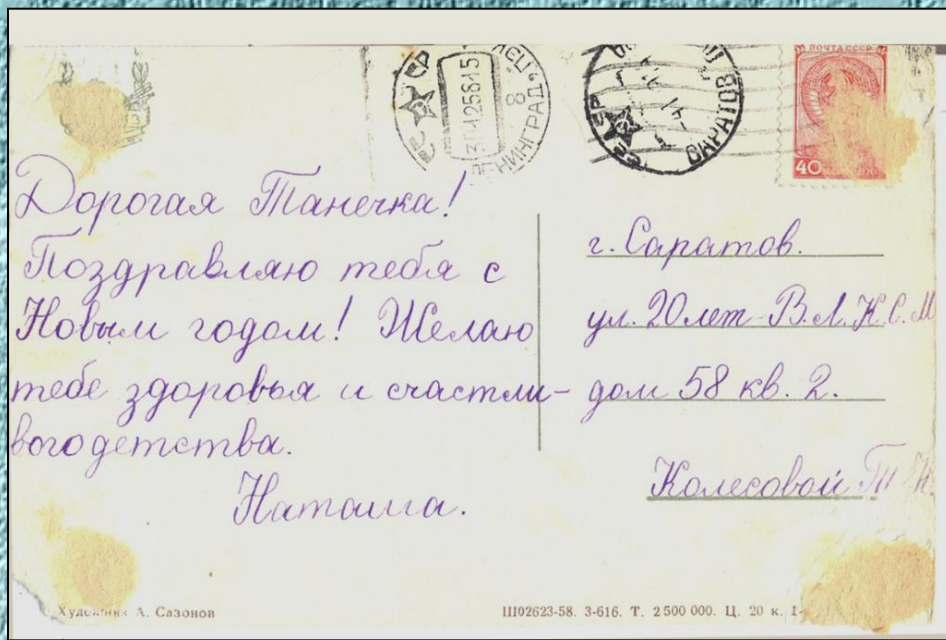 ПОЧТА СССР
ЛЕНИНГРАД
8
САРАТОВ
40
Дорогая Танечка!
Поздравляю тебя с
Новым годом! Желаю
тебе здоровья и счастли-
вого детства.
Наташа.
г. Саратов.
ул. 20 лет В.Л.К.С.М
дом 58 кв. 2.
Колесовой Т Н.
Художник А. Сазонов
Ш02623-58. З-616. Т. 2 500 000. Ц. 20 к.